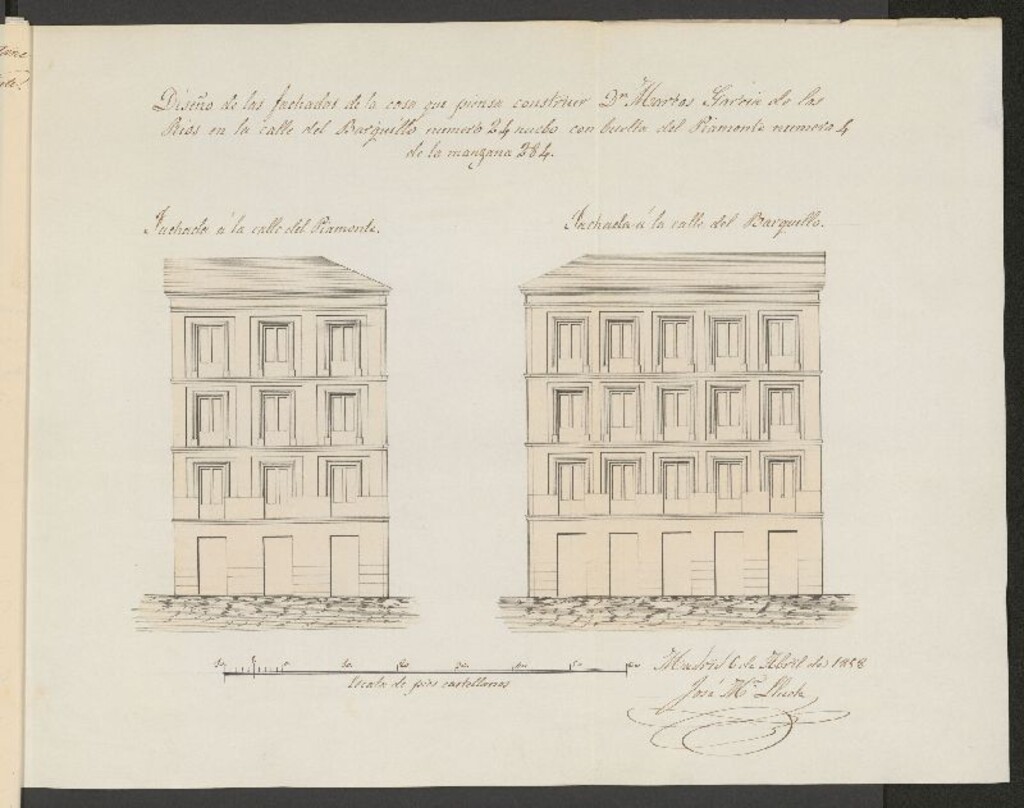 Diseño de las fachadas de la casa que piensa construir Dn Marcos Garcia de los
Rios en la calle del Barquillo numero 24 nuebo con buelta del Piamonte numero 4
de la manzana 284.
Fachada á la calle del Piamonte.
Fachada á la calle del Barquillo.
Escala de pies castellanos
Madrid 6 de Abril de 1858
José Ma